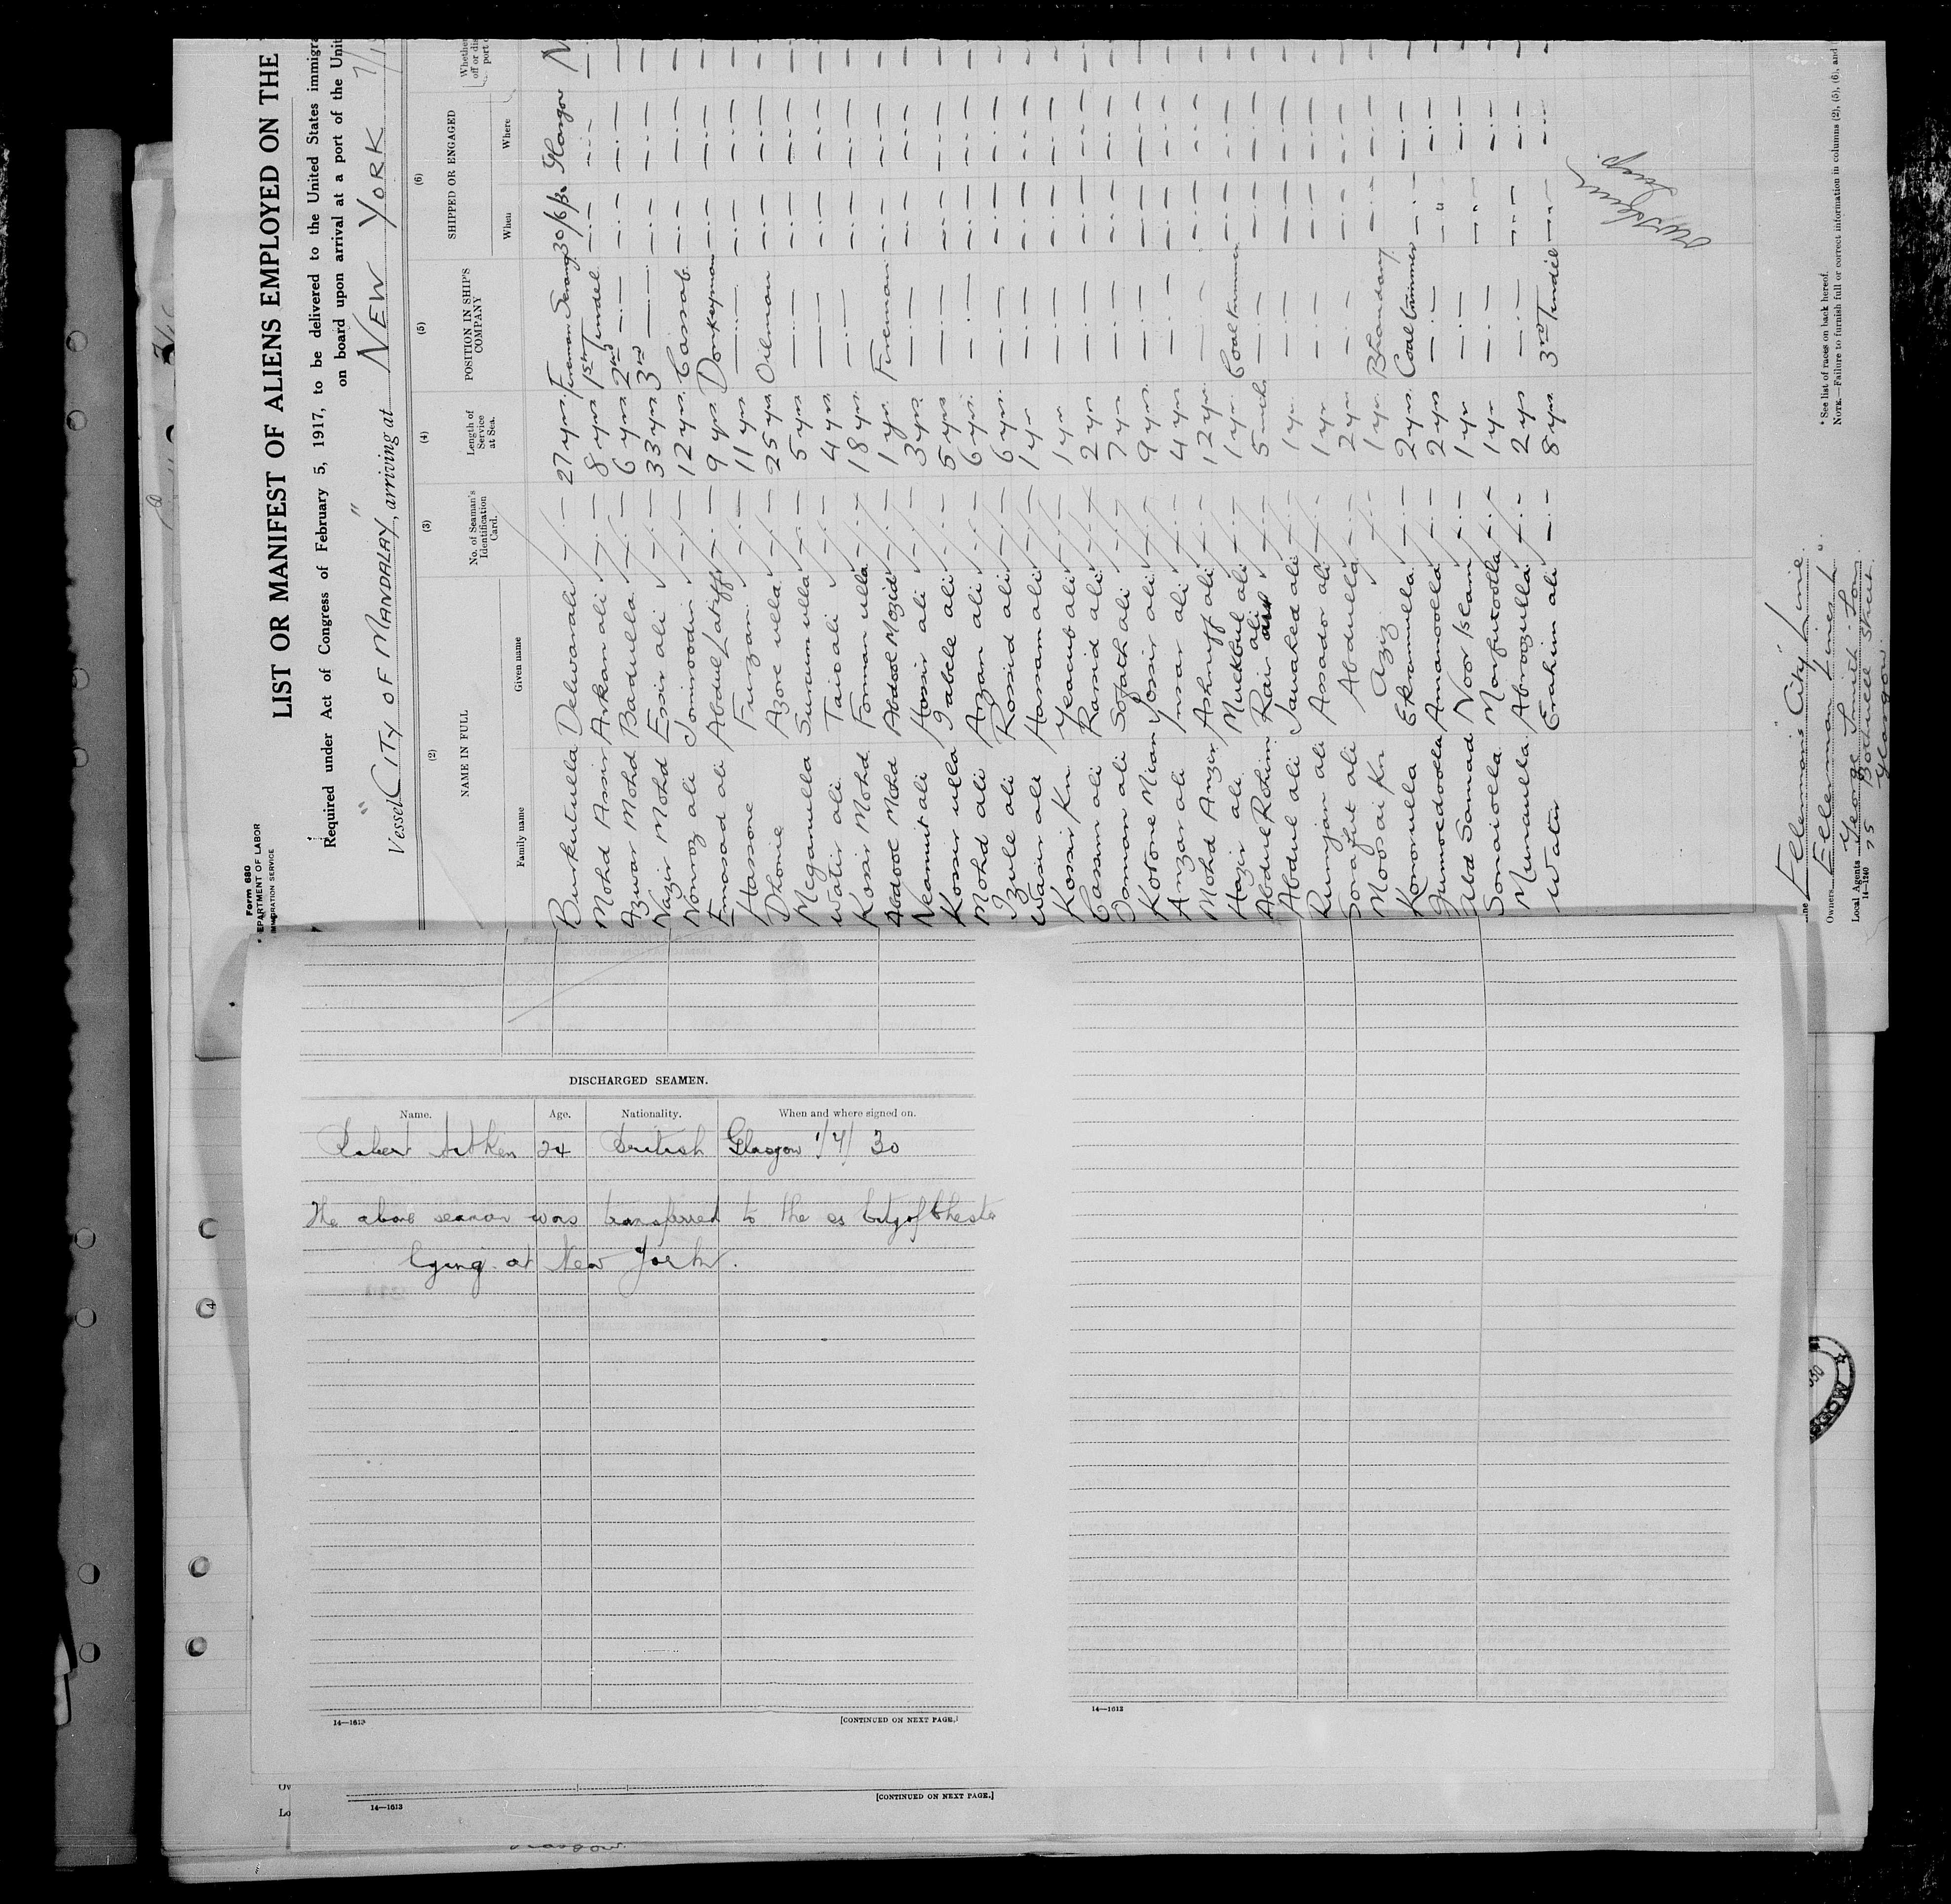 Form 680
DEPARTMENT OF LABOR
IMMIGRATION SERVICE
LIST OR MANIFEST OF ALIENS EMPLOYED ON THE
Required under Act of Congress of February 5, 1917, to be delivered to the United States immigra
on board upon arrival at a port of the Unit
Vessel "CITY OF MANDALAY", arriving at NEW YORK 7/1
(2) (3) (4) (5) (6)
NAME IN FULL
Family name Given name
No. of Seaman's Identification Card.
Length of Service at Sea.
POSITION IN SHIP'S COMPANY
SHIPPED OR ENGAGED
When Where
Burkutulla Delwarali 27 yrs. Fireman Serang 30/6/30 Glasgow N
Mohd Assir Arkan ali 8 yrs 1st Tindel
Azwar Mohd Badulla 6 yrs 2nd
Nazir Mohd Essir ali 33 yrs 3rd
Nowroz ali Jomiroodin 12 yrs. Cassab
Emasad ali Abdul Latiff 9 yrs Donkeyman
Hassone Furzan 11 yrs
Dhonie Azore ulla 25 yrs Oilman
Meganulla Surum ulla 5 yrs
Watir ali Tair ali 4 yrs
Kossir Mohd Forman ulla 18 yrs
Abdool Mohd Abdool Mozid 1 yr. Fireman
Neamut ali Hossir ali 3 yrs
Kossir ulla Jabele ali 5 yrs
Mohd ali Arzan ali 6 yrs
Izule ali Rossid ali 6 yrs.
Wasir ali Hassam ali 1 yr
Kossir Kn Yeacub ali 1 yr
Cassim ali Rasid ali 2 yrs
Toman ali Sofath ali 7 yrs
Kotone Mian Yossir ali 9 yrs
Anzar ali Insar ali 4 yrs
Mohd Anzir Ashruff ali 12 yrs
Hazir ali Muckbul ali 1 yr. Coal trimmer
Abdul Rohim Rair ali 5 mnths
Abdul ali Jawahed ali 1 yr.
Rumjan ali Assador ali 1 yr
Sorafut ali Abdulla 2 yrs
Moosai Kn Aziz 1 yr. Bhandary
Komorulla Ekramulla 2 yrs. Coal trimmer
Jumoedoolla Amanoolla 2 yrs
Abd Somad Noor Islam 1 yr
Sonaiolla Monfutoolla 1 yr
Munaulla Abroozulla 2 yrs
Watir Erahim ali 8 yrs. 3rd Tindel
Line Ellerman's "City" Line
Owners Ellerman Lines Ld
Local Agents George Smith & Sons
75 Bothwell Street
Glasgow.
14—1240
* See list of races on back hereof.
NOTE.—Failure to furnish full or correct information in columns (2), (5), (6), and
DISCHARGED SEAMEN.
Name. Age. Nationality. When and where signed on.
Robert Aitken 24 British Glasgow 1/7/30
The above seaman was transferred to the ss City of Cheste
lying at New York.
14—1613 [CONTINUED ON NEXT PAGE.]
14—1613
Ow
Lo
14—1613 [CONTINUED ON NEXT PAGE.]